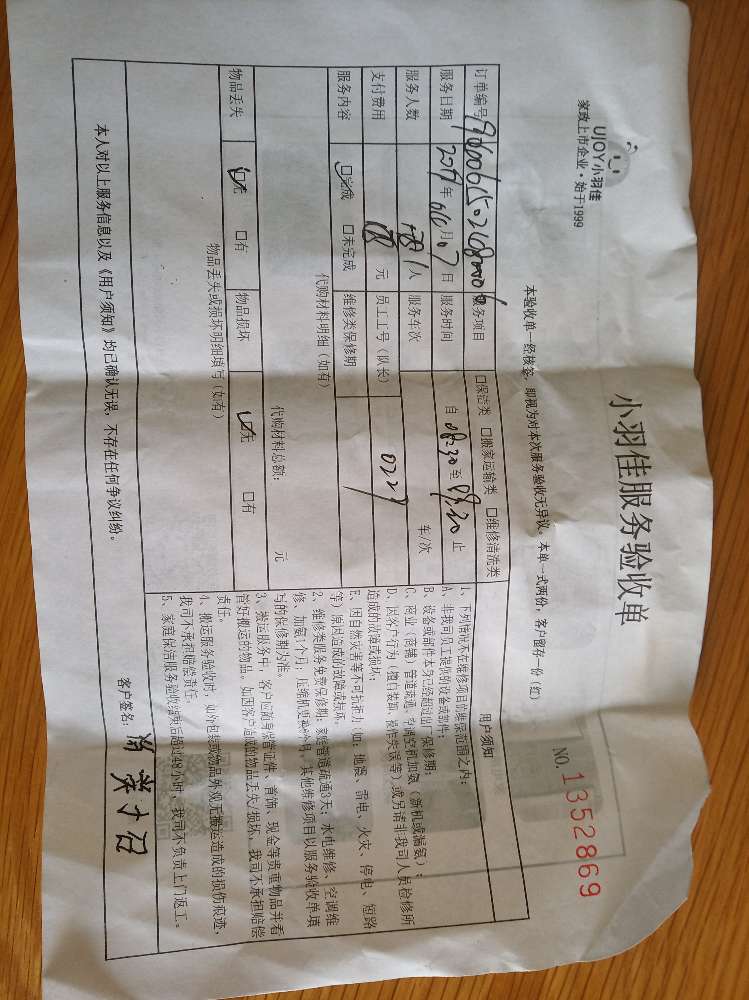 UJOY小羽佳
家政上市企业·始于1999
小羽佳服务验收单
NO.1352869
本验收单一经核签，即视为对本次服务验收无异议。本单一式两份，客户留存一份（红）
订单编号 服务项目 □保洁类 □搬家运输类 □维修清洗类
服务日期 年 月 07 日 服务时间 自 08:30 至 止
服务人数 1人 服务车次 车/次
支付费用 元 员工工号（队长） 0227
服务内容 □完成 □未完成 维修类保修期
代购材料明细（如有）
代购材料总额： 元
物品丢失 □无 □有 物品损坏 □无 □有
物品丢失或损坏明细填写（如有）
用户须知
1、下列情况不在维修项目的维保范围之内：
A、非我司员工提供的设备或部件；
B、设备或部件本身已经超过出厂保修期；
C、商业（商铺）管道疏通、空调空机加氨（新机或漏氨）；
D、因客户行为（擅自装卸、操作失误等）或另请非我司人员检修所
造成的故障或损坏；
E、因自然灾害等不可抗拒力（如：地震、雷电、火灾、停电、短路
等）原因造成的故障或损坏。
2、维修类服务免费保修期：家庭管道疏通3天；水电维修、空调维
修、加氨1个月；压缩机更换6个月，其他维修项目以服务验收单填
写的保修期为准。
3、搬运服务中，客户应随身保管证件、首饰、现金等贵重物品并看
管好搬运的物品。如因客户造成的物品丢失/损坏，我司不承担赔偿
责任。
4、搬运服务验收时，如外包装或物品外观无搬运造成的损伤痕迹，
我司不承担赔偿责任。
5、家庭保洁服务验收结束后超过48小时，我司不负责上门返工。
本人对以上服务信息以及《用户须知》均已确认无误，不存在任何争议纠纷。
客户签名：